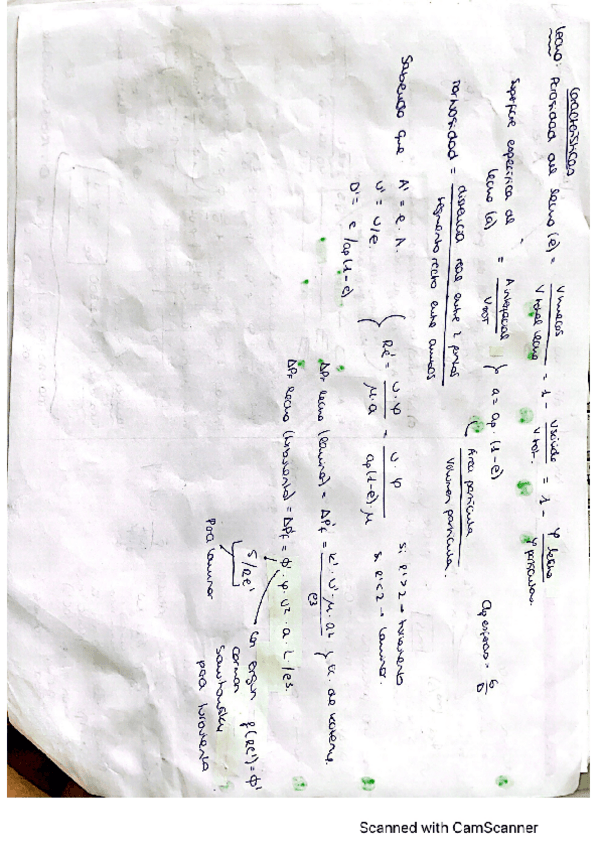 Características
Lecho: Porosidad del lecho (e) = V huecos / V total lecho = 1 - V sólido / V tot. = 1 - φ lecho / φ partículas.
Superficie específica del lecho (a) = A interfacial / V tot } a = ap · (1-e)
Área partícula / Volumen partícula.
ap esferas = 6/D
Tortuosidad = distancia real entre 2 puntos / segmento recto entre ambos
Sabiendo que A' = e · A.
u' = u/e.
D' = e / ap(1-e)
Re' = u · φ / μ · a = u · φ / ap(1-e) · μ
Si e' > 2 → turbulento
Si e' < 2 → laminar.
ΔPf lecho (laminar) = ΔPf = k' · u' · μ · a² / e3 } K. de Kozeny.
ΔPf lecho (turbulento) = ΔPf = φ' · φ · u² · a · L / e3.
5/Re'
Para laminar
con ergun f(Re') = φ'
carman
para turbulento
Scanned with CamScanner